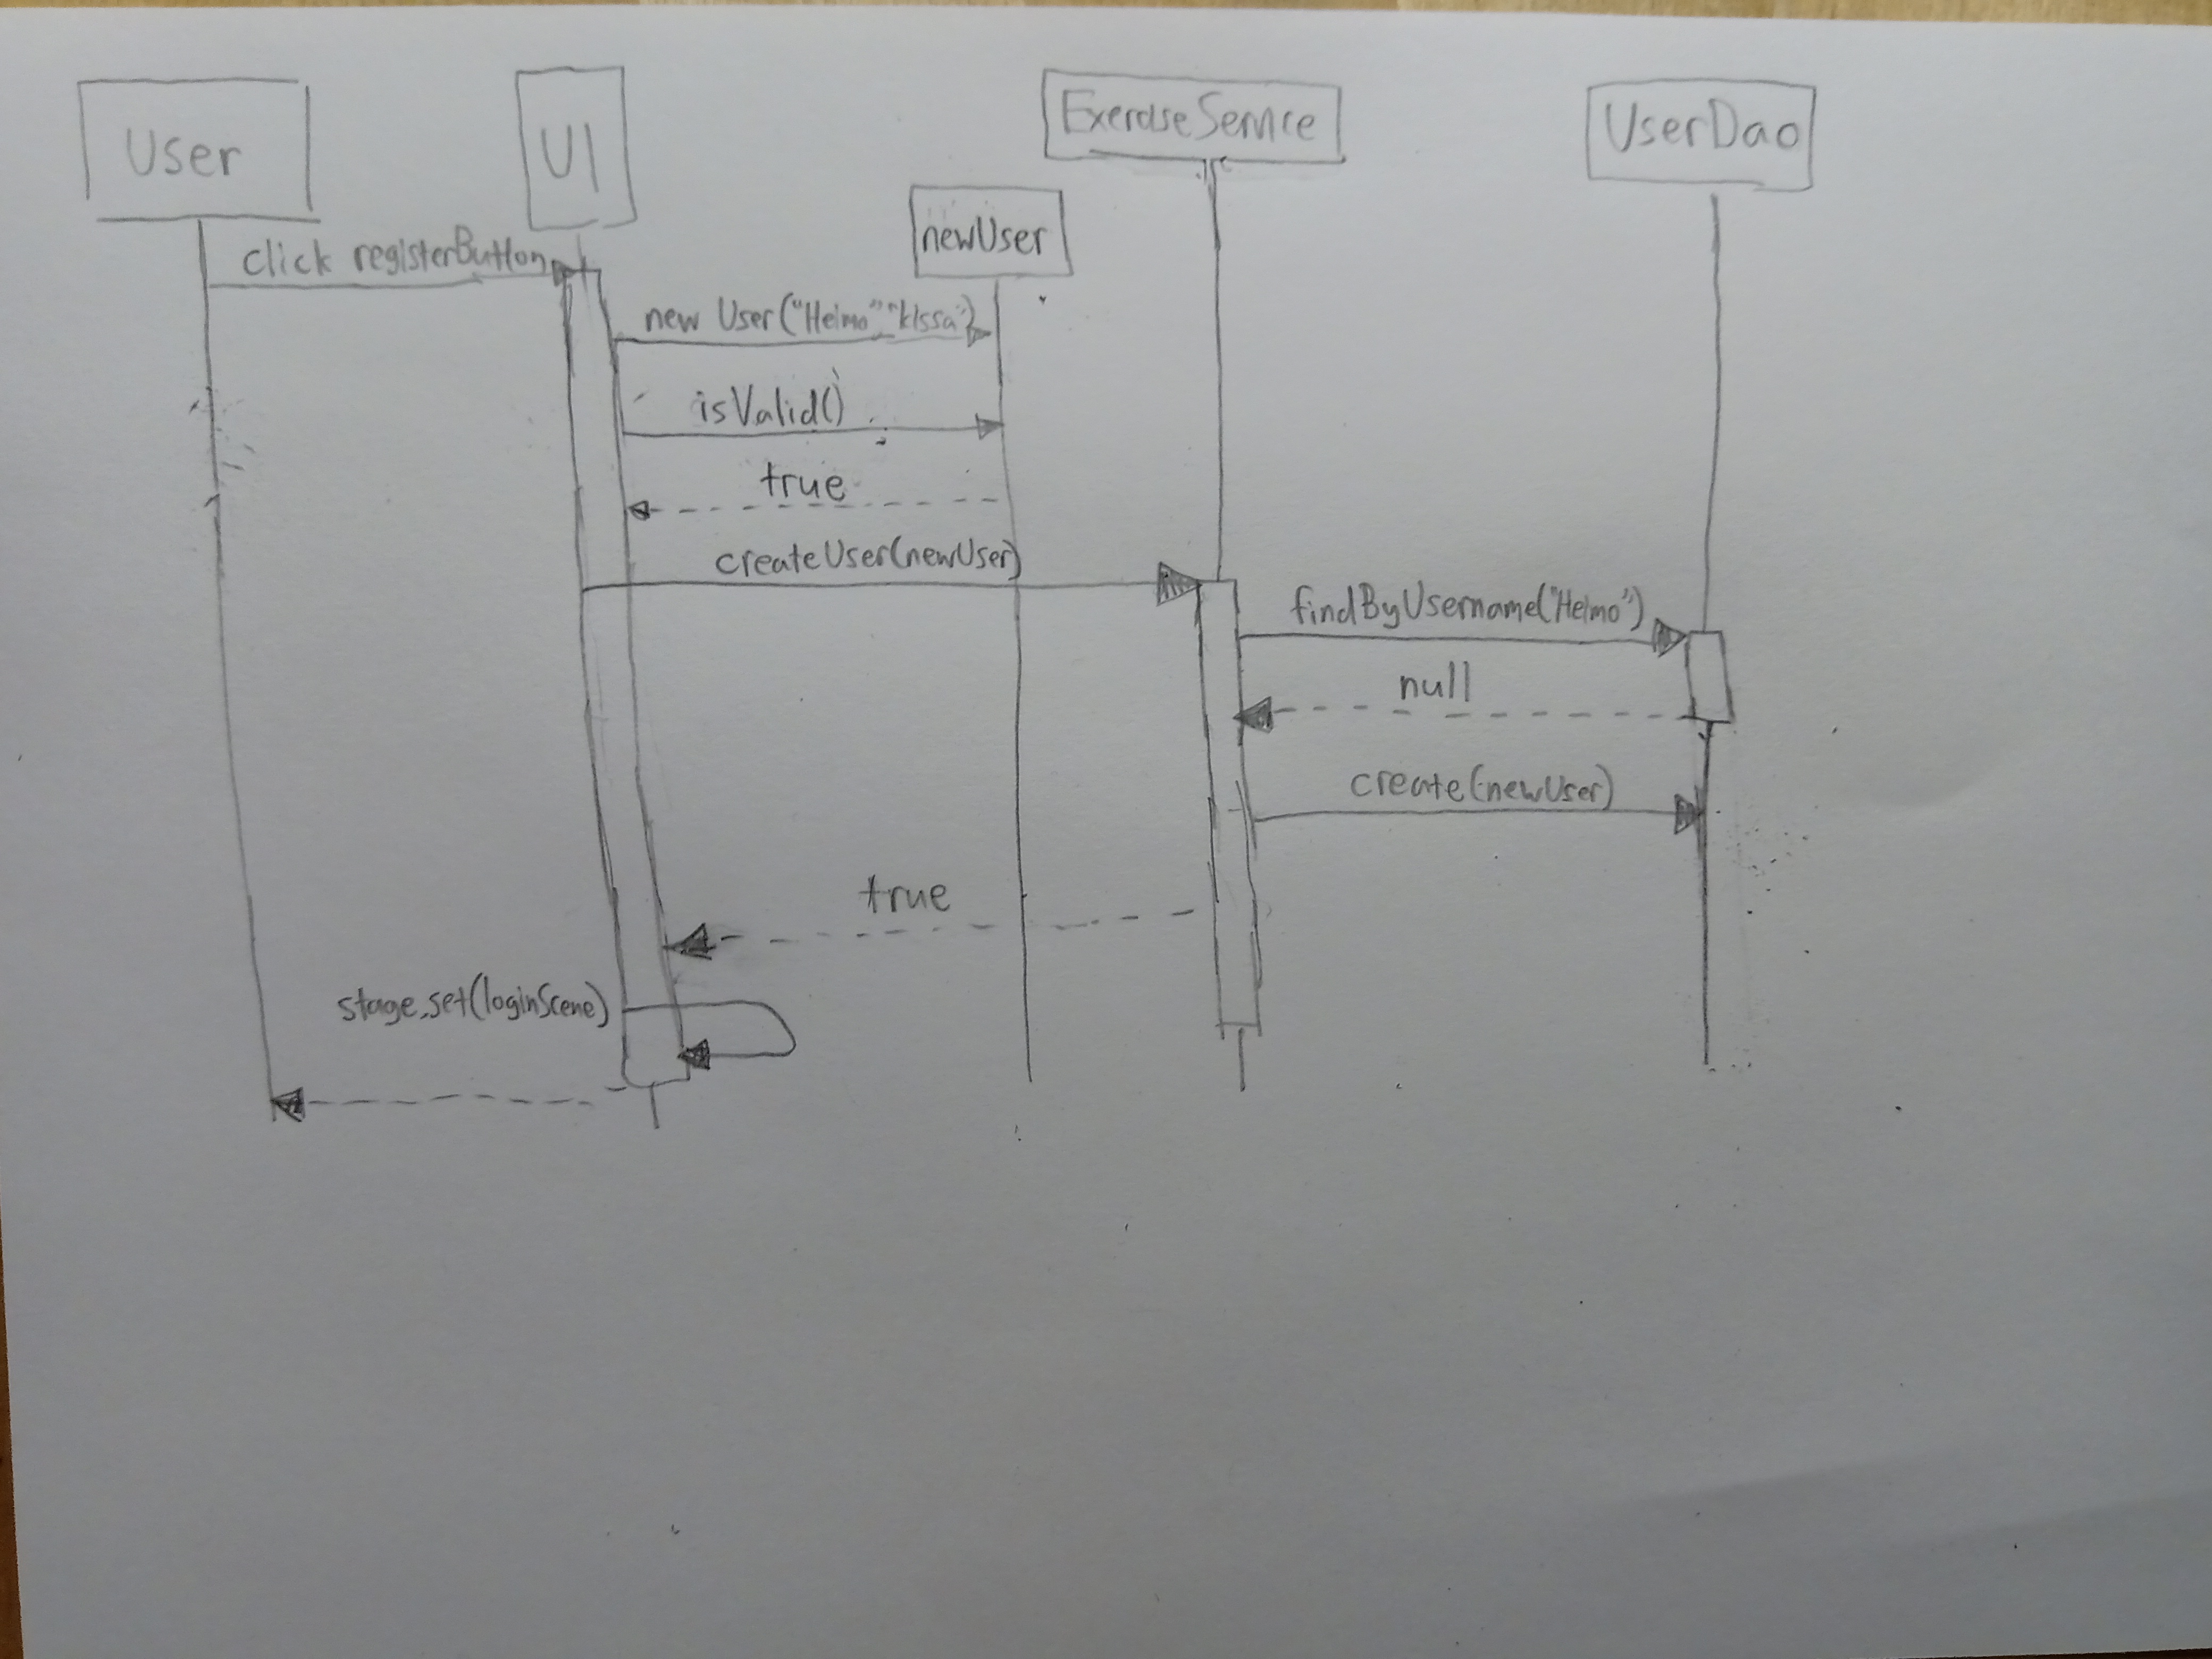 User
UI
ExerciseService
UserDao
newUser
click registerButton
new User("Heimo" "kissa")
isValid()
true
createUser(newUser)
findByUsername("Heimo")
null
create(newUser)
true
stage.set(loginScene)